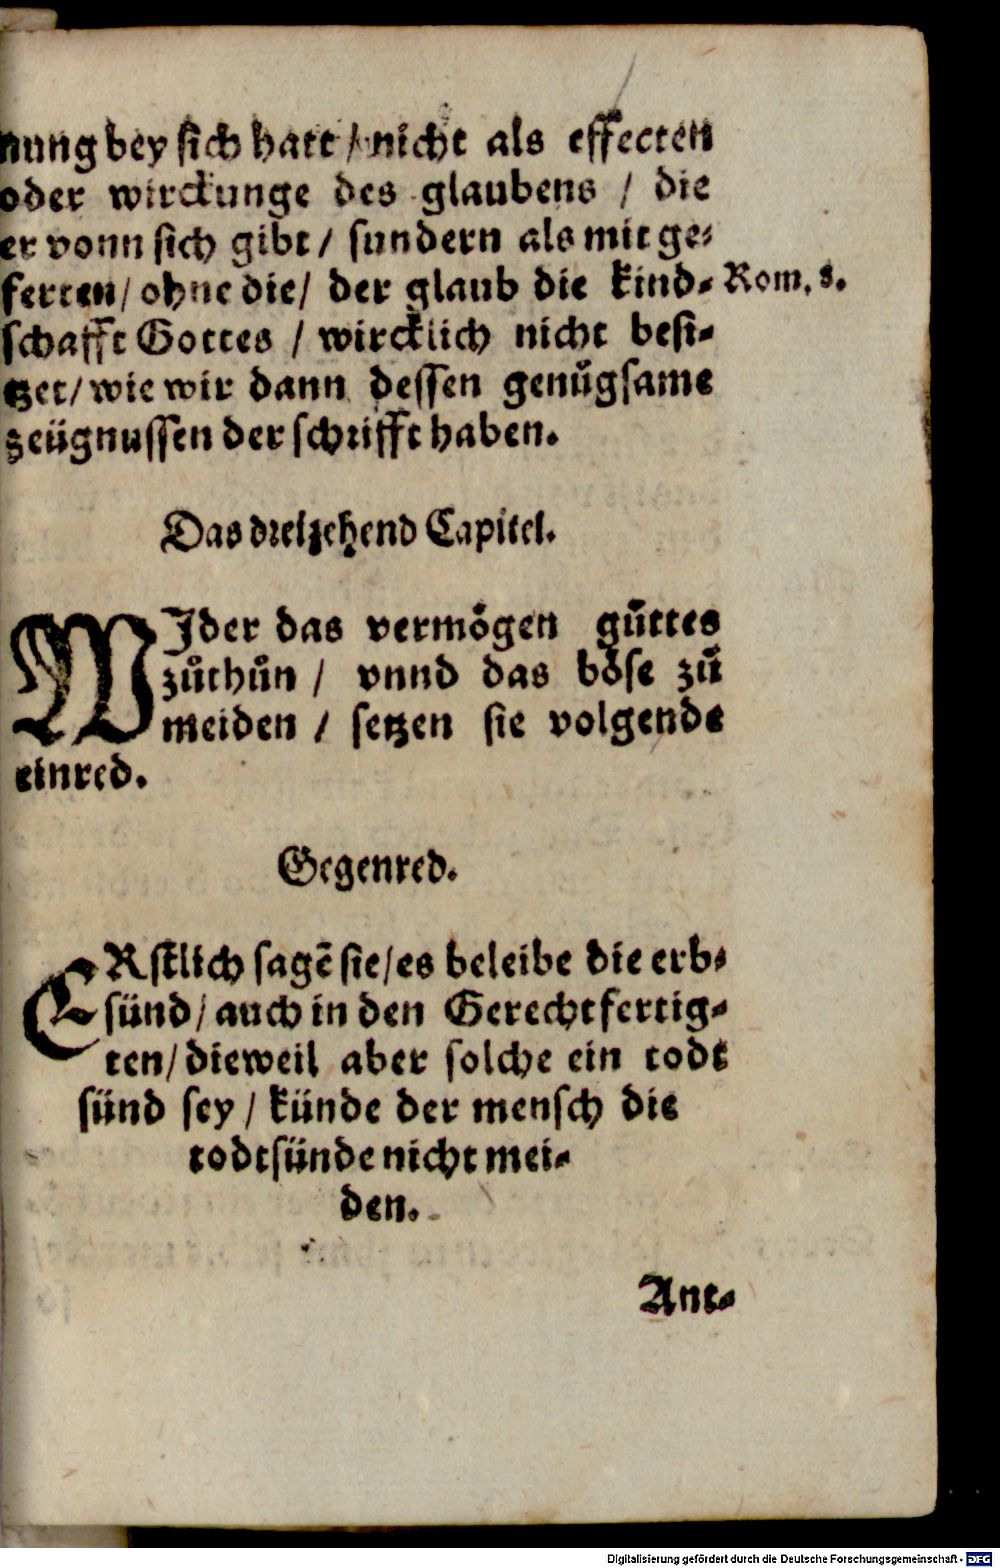 nung bey sich hatt / nicht als effecten
oder wirckunge des glaubens / die
er vonn sich gibt / sundern als mit ge-
ferten / ohne die / der glaub die kind-
Rom. 8.
schafft Gottes / wircklich nicht besi-
tzet / wie wir dann dessen genůgsame
zeügnussen der schrifft haben.
Das dreizehend Capitel.
WIder das vermögen gůttes
zůthůn / vnnd das böse zů
meiden / setzen sie volgende
einred.
Gegenred.
ERstlich sagē sie / es beleibe die erb-
sünd / auch in den Gerechtfertig-
ten / dieweil aber solche ein todt
sünd sey / künde der mensch die
todtsünde nicht mei-
den.
Ant-
Digitalisierung gefördert durch die Deutsche Forschungsgemeinschaft - DFG